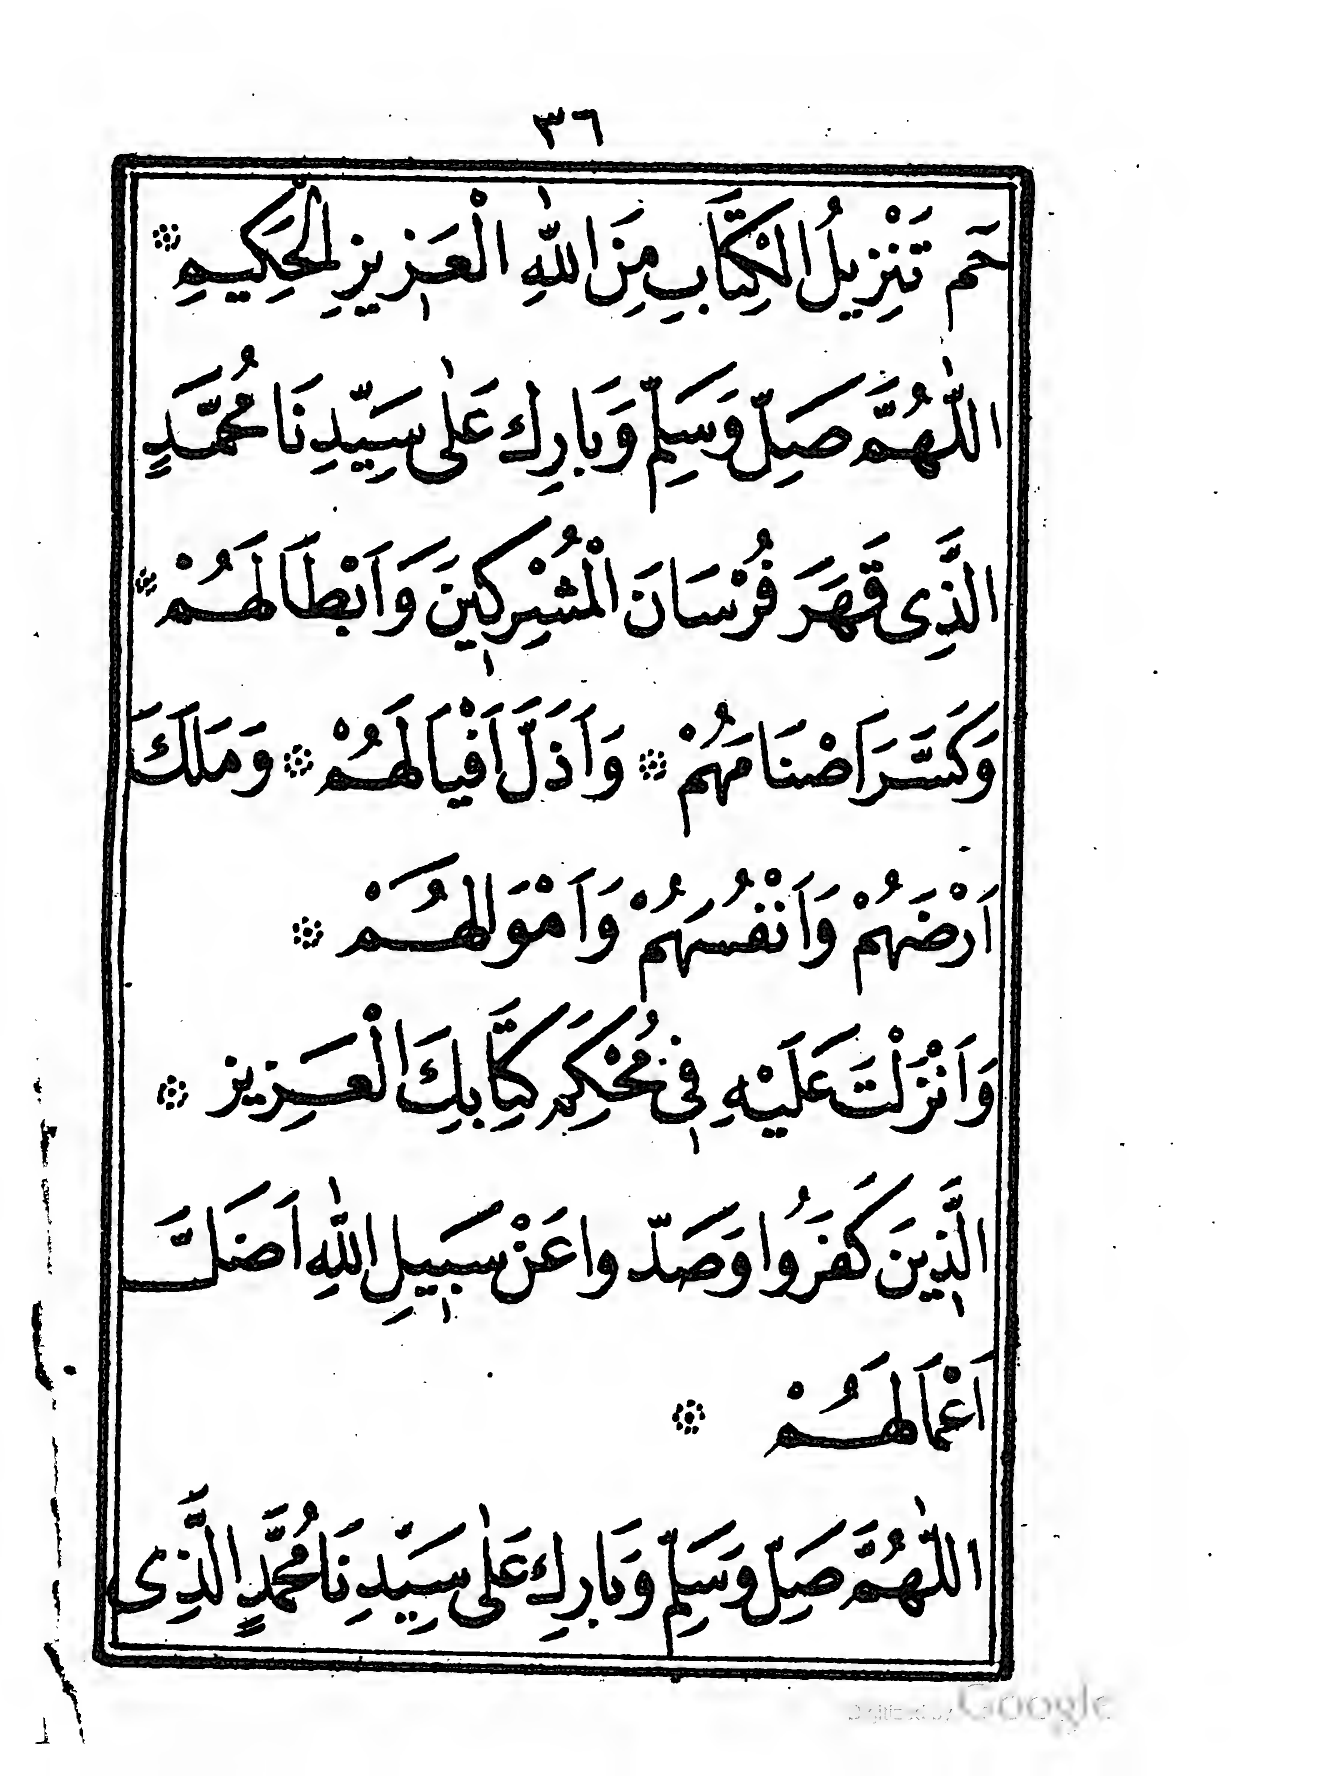 ٣٦
حٓم تَنْزِيلُ الْكِتَابِ مِنَ اللّٰهِ الْعَزِيزِ الْحَكِيمِ ۞
اَللّٰهُمَّ صَلِّ وَسَلِّمْ وَبَارِكْ عَلٰى سَيِّدِنَا مُحَمَّدٍ
الَّذِى قَهَرَ فُرْسَانَ الْمُشْرِكِينَ وَاَبْطَالَهُمْ ۞
وَكَسَّرَ اَصْنَامَهُمْ ۞ وَاَذَلَّ اَفْيَالَهُمْ ۞ وَمَلَكَ
اَرْضَهُمْ وَاَنْفُسَهُمْ وَاَمْوَالَهُمْ ۞
وَاَنْزَلْتَ عَلَيْهِ فِى مُحْكَمِ كِتَابِكَ الْعَزِيزِ ۞
الَّذِينَ كَفَرُوا وَصَدُّوا عَنْ سَبِيلِ اللّٰهِ اَضَلَّ
اَعْمَالَهُمْ ۞
اَللّٰهُمَّ صَلِّ وَسَلِّمْ وَبَارِكْ عَلٰى سَيِّدِنَا مُحَمَّدٍ الَّذِى
Digitized by Google